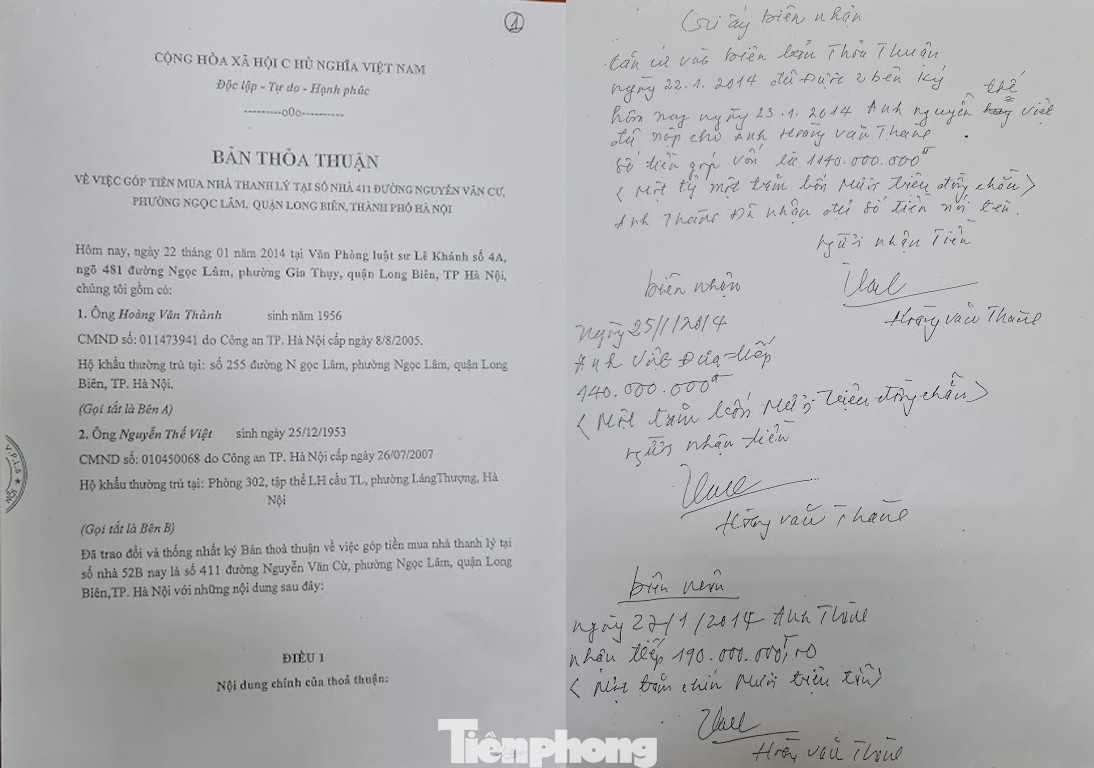 1
CỘNG HÒA XÃ HỘI C HỦ NGHĨA VIỆT NAM
Độc lập - Tự do - Hạnh phúc
----------o0o----------
BẢN THỎA THUẬN
VỀ VIỆC GÓP TIỀN MUA NHÀ THANH LÝ TẠI SỐ NHÀ 411 ĐƯỜNG NGUYỄN VĂN CƯ,
PHƯỜNG NGỌC LÂM, QUẬN LONG BIÊN, THÀNH PHỐ HÀ NỘI
Hôm nay, ngày 22 tháng 01 năm 2014 tại Văn Phòng luật sư Lê Khánh số 4A,
ngõ 481 đường Ngọc Lâm, phường Gia Thụy, quận Long Biên, TP Hà Nội,
chúng tôi gồm có:
1. Ông Hoàng Văn Thành sinh năm 1956
CMND số: 011473941 do Công an TP. Hà Nội cấp ngày 8/8/2005.
Hộ khẩu thường trú tại: số 255 đường N gọc Lâm, phường Ngọc Lâm, quận Long
Biên, TP. Hà Nội.
(Gọi tắt là Bên A)
2. Ông Nguyễn Thế Việt sinh ngày 25/12/1953
CMND số: 010450068 do Công an TP. Hà Nội cấp ngày 26/07/2007
Hộ khẩu thường trú tại: Phòng 302, tập thể LH cầu TL, phường LángThượng, Hà
Nội
(Gọi tắt là Bên B)
Đã trao đổi và thống nhất ký Bản thoả thuận về việc góp tiền mua nhà thanh lý tại
số nhà 52B nay là số 411 đường Nguyễn Văn Cừ, phường Ngọc Lâm, quận Long
Biên,TP. Hà Nội với những nội dung sau đây:
ĐIỀU 1
Nội dung chính của thoả thuận:
V.P.L.S
Giấy biên nhận
Căn cứ vào biên bản Thỏa Thuận
ngày 22.1.2014 đã được 2 bên ký
thế
hôm nay ngày 23.1.2014 Anh nguyễn việt
đã nộp cho Anh Hoàng văn Thành
số tiền góp vốn là 1140.000.000đ
(Một tỷ một trăm bốn mươi triệu đồng chẵn)
Anh Thành Đã nhận đủ số tiền nói trên.
người nhận Tiền
Hoàng văn Thành
biên nhận
ngày 25/1/2014
Anh Việt Đưa tiếp
140.000.000đ
(Một trăm bốn mươi triệu đồng chẵn)
người nhận tiền
Hoàng văn Thành
biên nhận
ngày 27/1/2014 Anh Thành
nhận tiếp 190.000.000đ
(Một trăm chín mươi triệu)
Hoàng văn Thành
Tiênphong